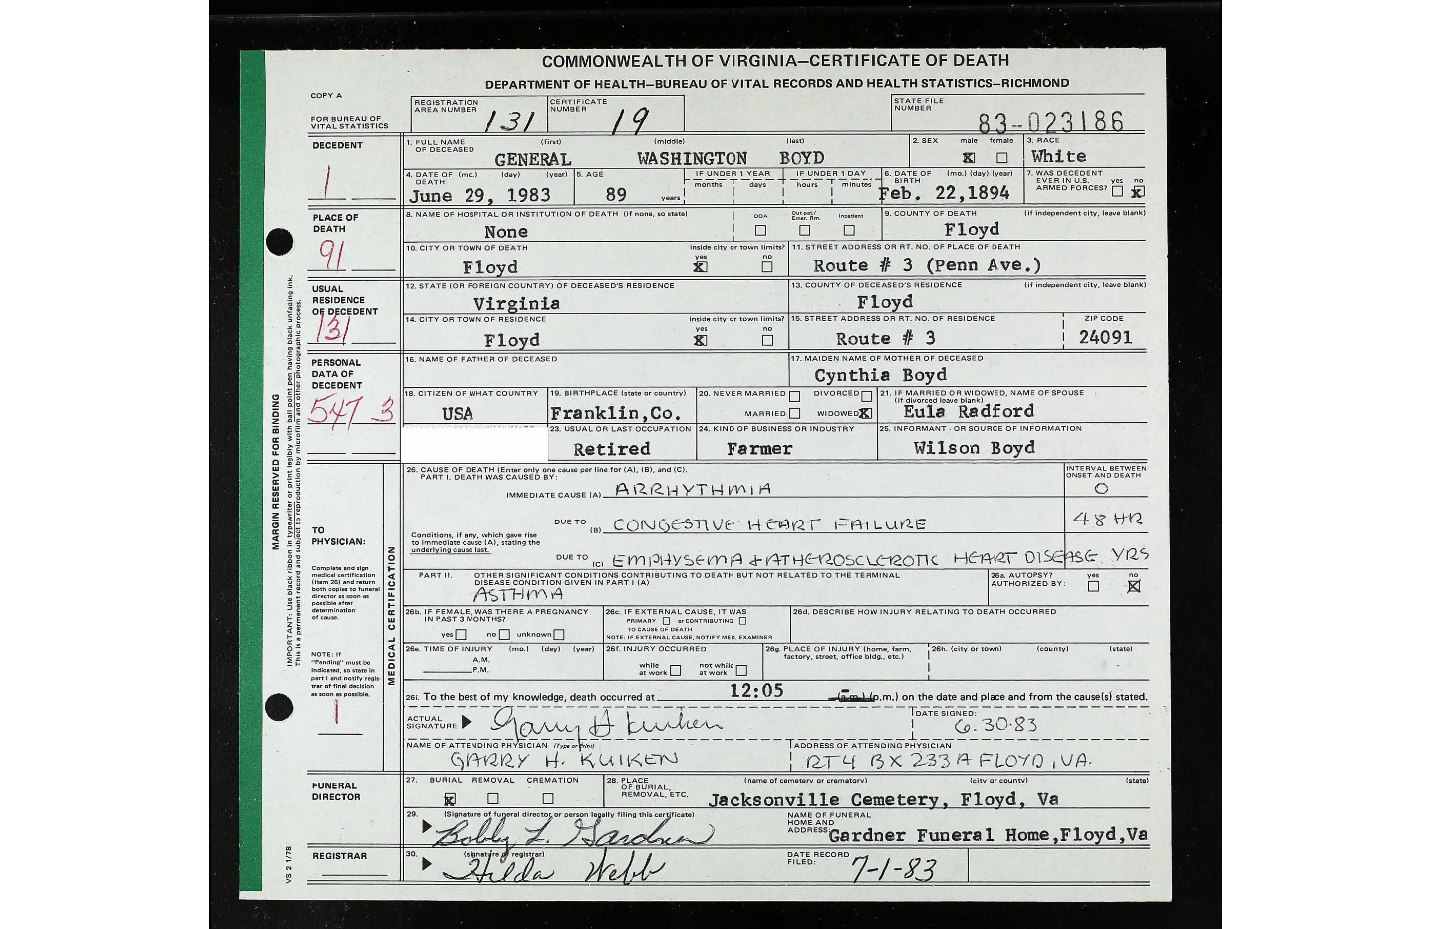 COMMONWEALTH OF VIRGINIA—CERTIFICATE OF DEATH
DEPARTMENT OF HEALTH—BUREAU OF VITAL RECORDS AND HEALTH STATISTICS—RICHMOND
COPY A
FOR BUREAU OF VITAL STATISTICS
REGISTRATION AREA NUMBER 131
CERTIFICATE NUMBER 19
STATE FILE NUMBER 83-023186
DECEDENT
1
1. FULL NAME OF DECEASED (first) (middle) (last)
GENERAL WASHINGTON BOYD
2. SEX male female
X
3. RACE
White
4. DATE OF DEATH (mo.) (day) (year)
June 29, 1983
5. AGE
89 years
IF UNDER 1 YEAR months days
IF UNDER 1 DAY hours minutes
6. DATE OF BIRTH (mo.) (day) (year)
Feb. 22,1894
7. WAS DECEDENT EVER IN U.S. ARMED FORCES? yes no
X
PLACE OF DEATH
91
8. NAME OF HOSPITAL OR INSTITUTION OF DEATH (if none, so state)
None
DOA Out pat/ Emer. Rm. Inpatient
9. COUNTY OF DEATH (if independent city, leave blank)
Floyd
10. CITY OR TOWN OF DEATH
Floyd
inside city or town limits? yes no
X
11. STREET ADDRESS OR RT. NO. OF PLACE OF DEATH
Route # 3 (Penn Ave.)
USUAL RESIDENCE OF DECEDENT
131
12. STATE (OR FOREIGN COUNTRY) OF DECEASED'S RESIDENCE
Virginia
13. COUNTY OF DECEASED'S RESIDENCE (if independent city, leave blank)
Floyd
14. CITY OR TOWN OF RESIDENCE
Floyd
inside city or town limits? yes no
X
15. STREET ADDRESS OR RT. NO. OF RESIDENCE
Route # 3
ZIP CODE
24091
PERSONAL DATA OF DECEDENT
547 3
16. NAME OF FATHER OF DECEASED
17. MAIDEN NAME OF MOTHER OF DECEASED
Cynthia Boyd
18. CITIZEN OF WHAT COUNTRY
USA
19. BIRTHPLACE (state or country)
Franklin,Co.
20. NEVER MARRIED DIVORCED
MARRIED WIDOWED X
21. IF MARRIED OR WIDOWED, NAME OF SPOUSE (If divorced leave blank)
Eula Radford
23. USUAL OR LAST OCCUPATION
Retired
24. KIND OF BUSINESS OR INDUSTRY
Farmer
25. INFORMANT - OR SOURCE OF INFORMATION
Wilson Boyd
MARGIN RESERVED FOR BINDING
IMPORTANT: Use black ribbon in typewriter or print legibly with ball point pen having black unfading ink.
This is a permanent record and subject to reproduction by microfilm and other photographic process.
TO PHYSICIAN:
Complete and sign medical certification (item 26) and return both copies to funeral director as soon as possible after determination of cause.
NOTE: If "Pending" must be indicated, so state in part I and notify registrar of final decision as soon as possible.
1
MEDICAL CERTIFICATION
26. CAUSE OF DEATH (Enter only one cause per line for (A), (B), and (C).
PART I. DEATH WAS CAUSED BY:
INTERVAL BETWEEN ONSET AND DEATH
IMMEDIATE CAUSE (A) ARRHYTHMIA 0
Conditions, if any, which gave rise to immediate cause (A), stating the underlying cause last.
DUE TO (B) CONGESTIVE HEART FAILURE 48 HR
DUE TO (C) EMPHYSEMA + ATHEROSCLEROTIC HEART DISEASE YRS
PART II. OTHER SIGNIFICANT CONDITIONS CONTRIBUTING TO DEATH BUT NOT RELATED TO THE TERMINAL DISEASE CONDITION GIVEN IN PART I (A)
ASTHMA
26a. AUTOPSY? AUTHORIZED BY: yes no
X
26b. IF FEMALE, WAS THERE A PREGNANCY IN PAST 3 MONTHS?
yes no unknown
26c. IF EXTERNAL CAUSE, IT WAS
PRIMARY or CONTRIBUTING
TO CAUSE OF DEATH
NOTE: IF EXTERNAL CAUSE, NOTIFY MED. EXAMINER
26d. DESCRIBE HOW INJURY RELATING TO DEATH OCCURRED
26e. TIME OF INJURY (mo.) (day) (year)
A.M.
P.M.
26f. INJURY OCCURRED
while at work not while at work
26g. PLACE OF INJURY (home, farm, factory, street, office bldg., etc.)
26h. (city or town) (county) (state)
26i. To the best of my knowledge, death occurred at 12:05 (a.m.) (p.m.) on the date and place and from the cause(s) stated.
ACTUAL SIGNATURE Garry H Kuiken
DATE SIGNED:
6.30.83
NAME OF ATTENDING PHYSICIAN (Type or Print)
GARRY H. KUIKEN
ADDRESS OF ATTENDING PHYSICIAN
RT4 BX 233A FLOYD, VA.
FUNERAL DIRECTOR
27. BURIAL REMOVAL CREMATION
X
28. PLACE OF BURIAL, REMOVAL, ETC. (name of cemetery or crematory) (city or county) (state)
Jacksonville Cemetery, Floyd, Va
29. (Signature of funeral director or person legally filing this certificate)
Bobby L. Gardner
NAME OF FUNERAL HOME AND ADDRESS
Gardner Funeral Home,Floyd,Va
REGISTRAR
30. (signature of registrar)
Hilda Webb
DATE RECORD FILED:
7-1-83
VS 2 1/78